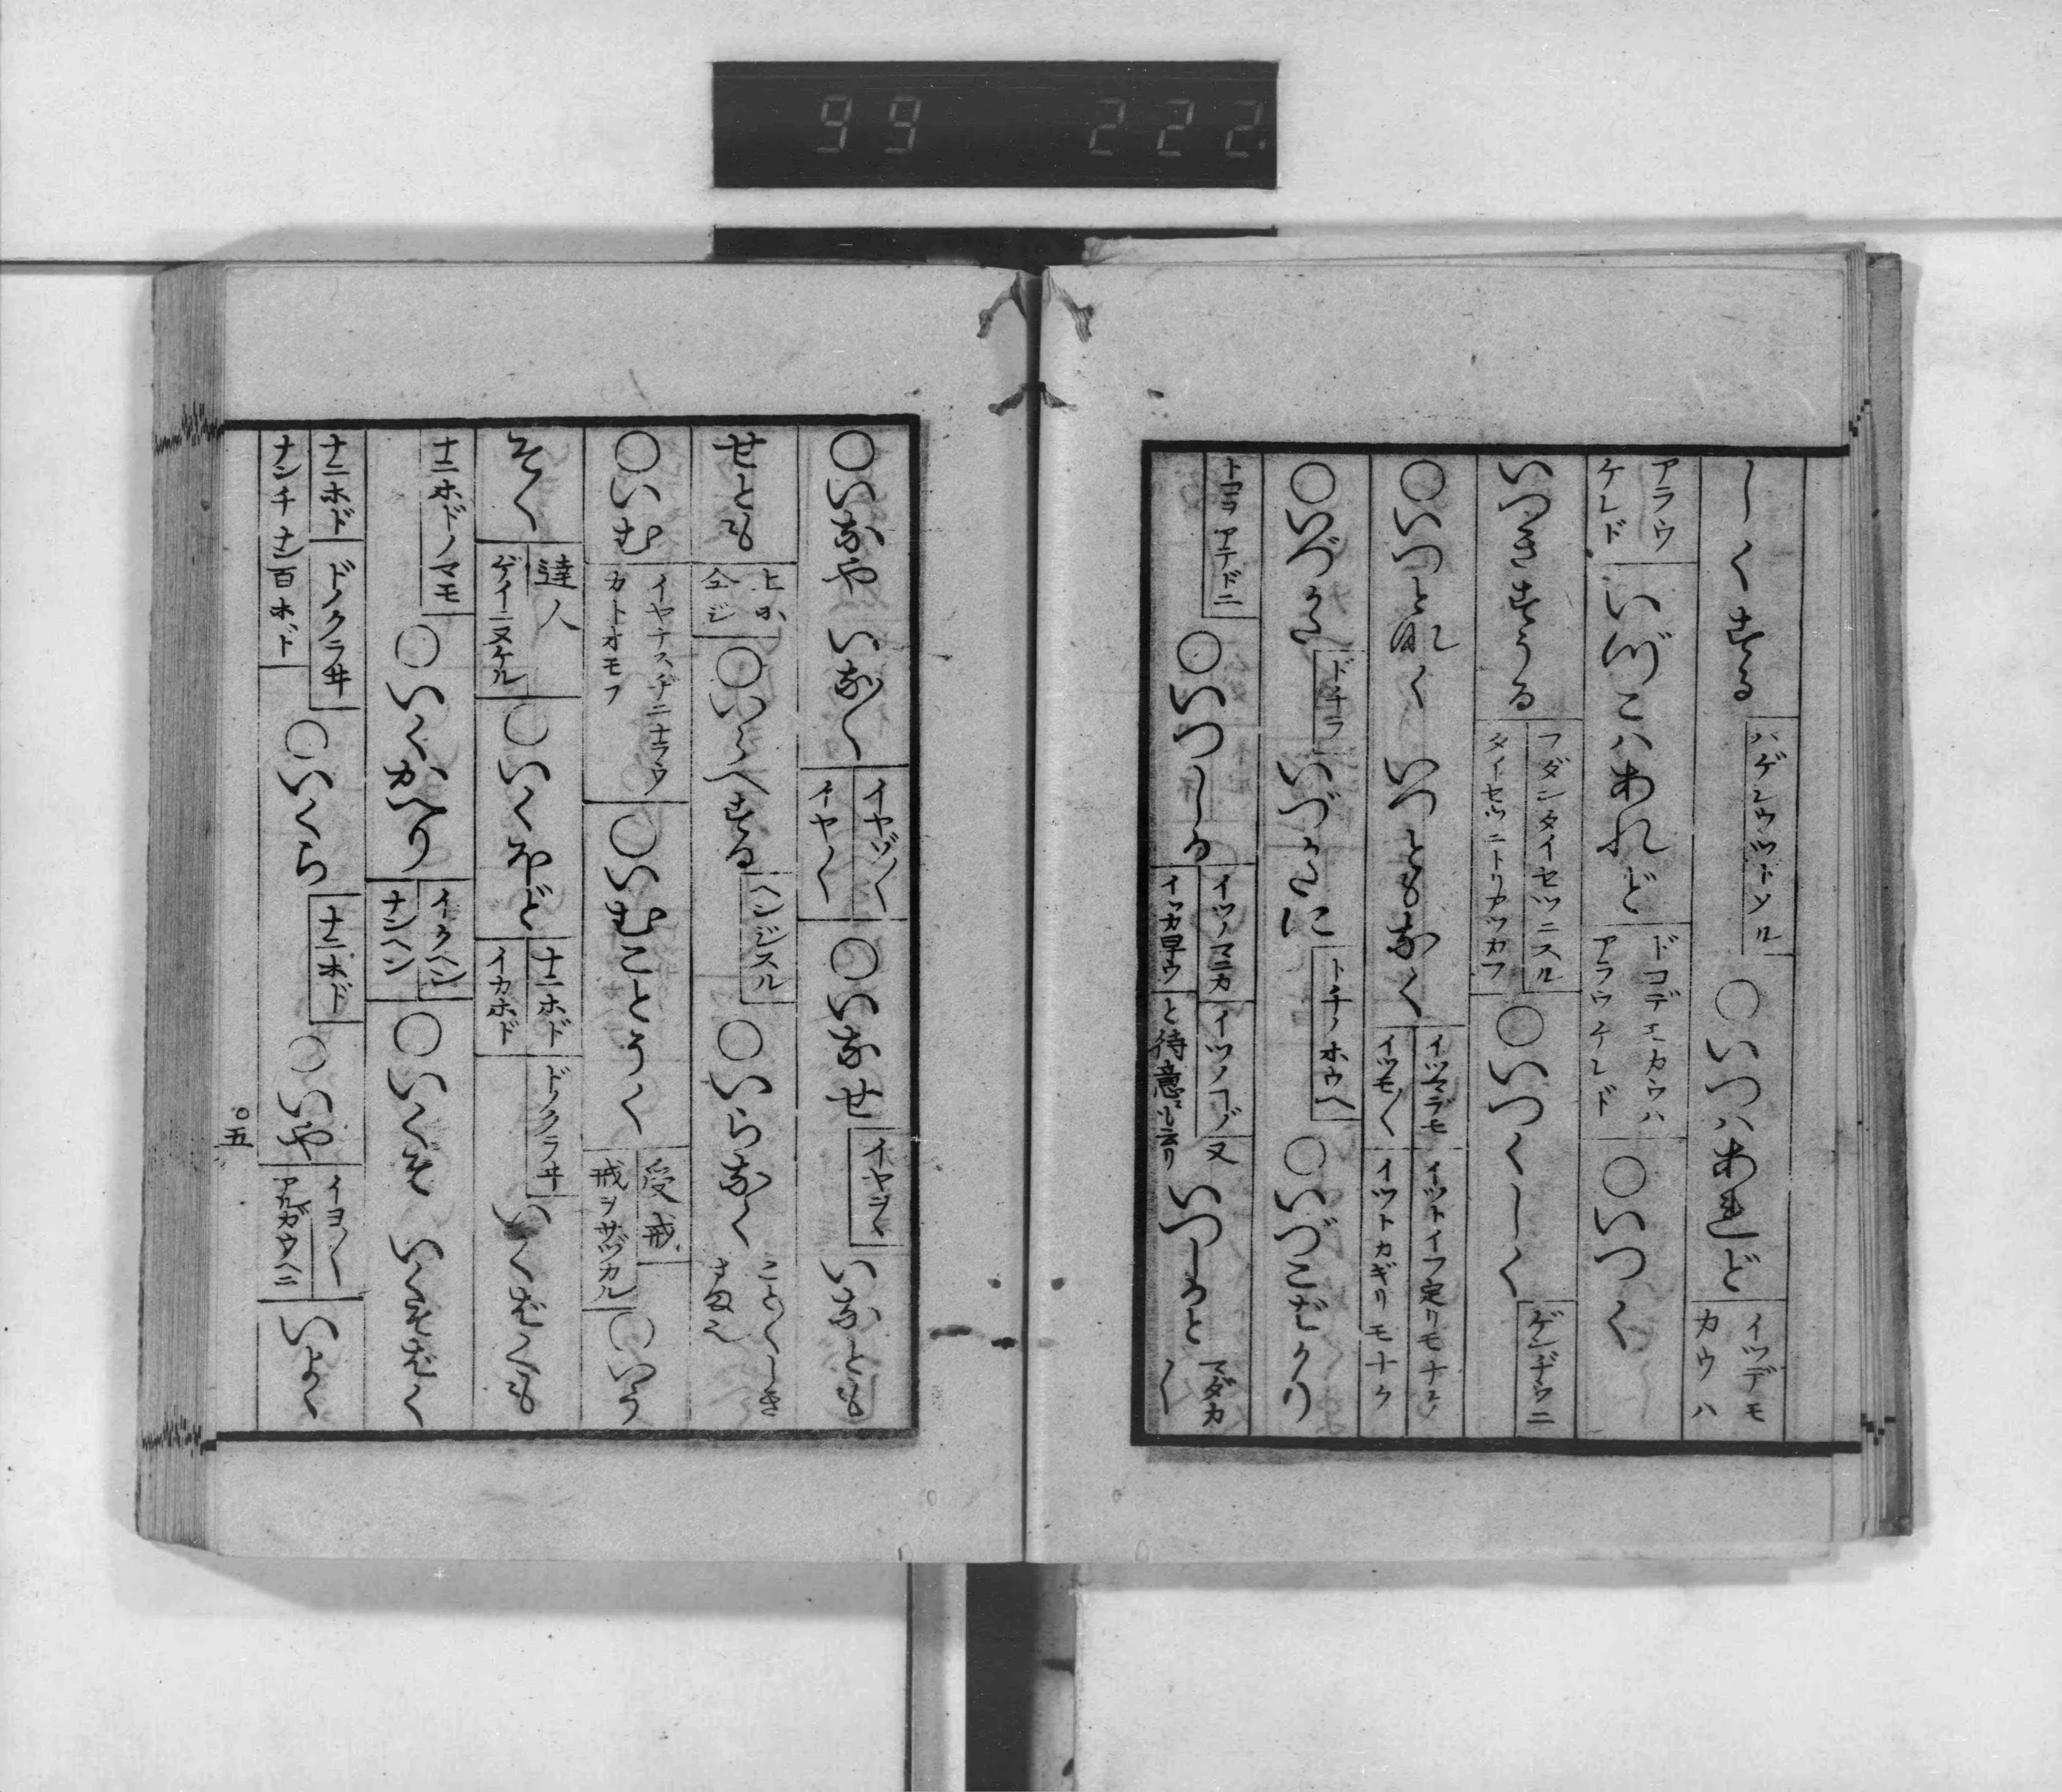 99 222
しくする ハゲシウツトメル ○いつハあれど イツデモカウハ
アラウケレド いづこハあれど ドコデモカウハアラウケレド ○いつく
いつきすうる フダンタイセツニスル タイセツニトリアツカフ ○いつくしく ゲンヂウニ
いつともなく イツマデモ イツモ〱 イツトイフ定リモナク イツトカギリモナク
○いづかた ドチラ いづかたに ドチノホウヘ ○いづこばかり
ドコラアテドニ ○いつしか イツノマニカ イツカ早ウ イツノコロ 又 いつしかと マダカ〱 と待意ニも云リ
○いなや いな〱 イヤヅ〱 イヤ〱 ○いなせ イヤヲウ いなとも
せとも 上が 仝ジ ○いらへする ヘンジスル ○いらなく こと〲しきさまに
○いむ イヤナスヂニナラウカトオモフ ○いむことうく 受戒 戒ヲサヅカル ○いう
そく 達人 ゲイニヌケル ○いくほど ナニホド イカホド ドノクラヰ いくばくも
ナニホドノマモ ○いくかへり イクヘン ナンヘン ○いくそ いくそばく
ナニホド ドノクラヰ ナンチナン百ホド ○いくら ナニホド ○いや イヨ〱 アルガウヘニ いよ〱
五